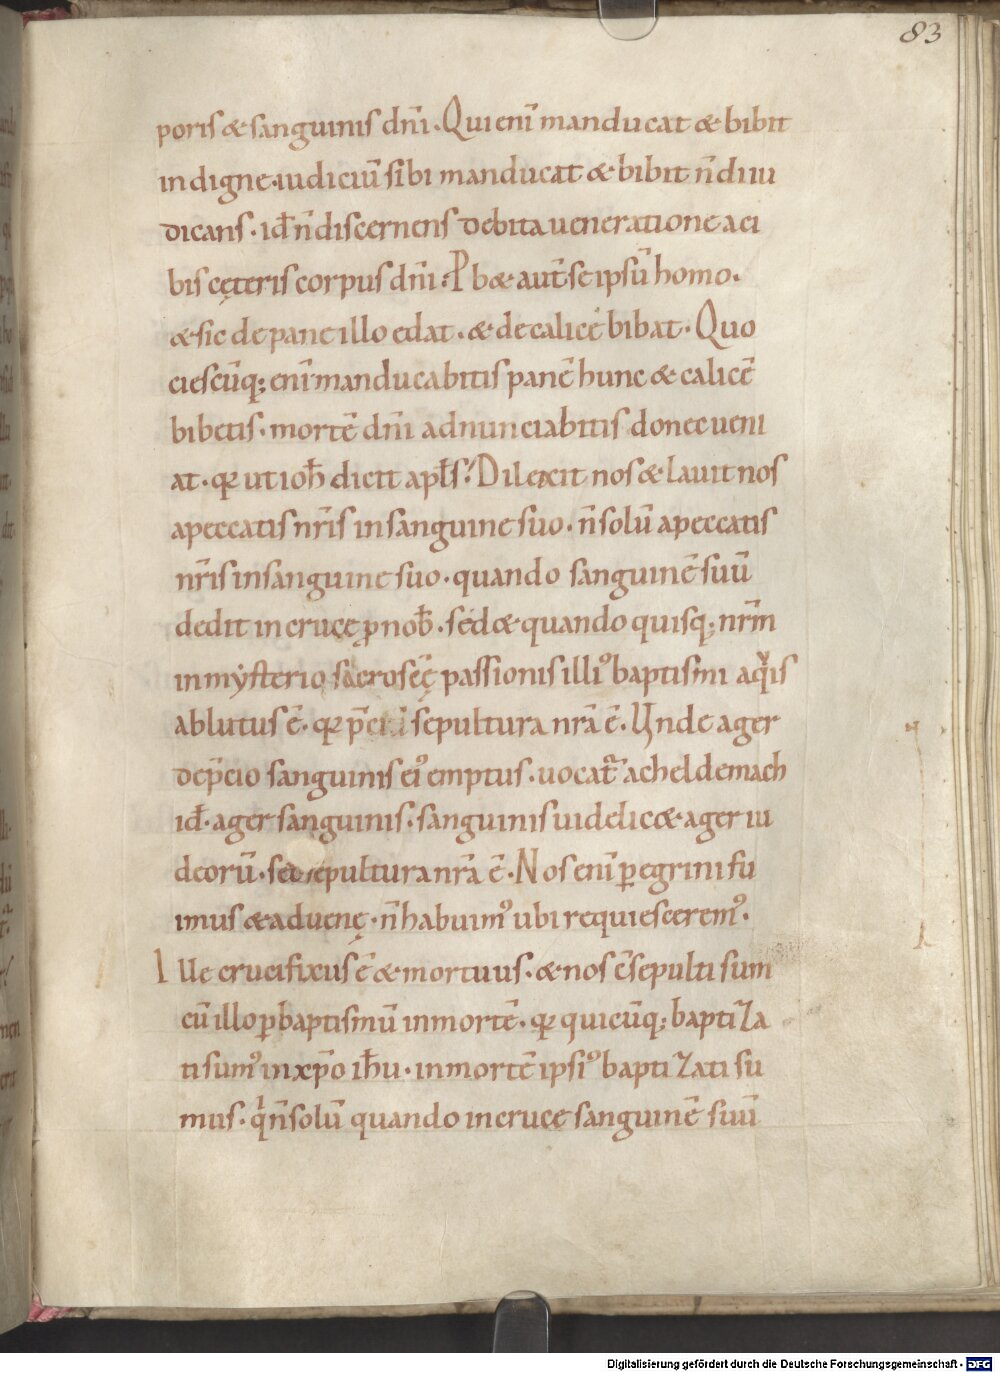 83
poris & sanguinis dn̄i. Qui eni̅ manducat & bibit
indigne. iudiciū sibi manducat & bibit n̄ diiu
dicans. id̄ n̄ discernens debita ueneratione a ci
bis cęteris corpus dn̄i. P b& aut̄ se ipsū homo.
& sic de pane illo edat. & de calice bibat. Quo
ciescūq; eni̅ manducabitis panē hunc & calicē
bibetis. mortē dn̄i adnunciabitis donec ueni
at. qr ut ioh̄ dicit apls̄. Dilexit nos & lauit nos
a peccatis nr̄is in sanguine suo. n̄ solū a peccatis
nr̄is in sanguine suo. quando sanguinē suū
dedit in cruce ꝓ nob̄. sed & quando quisq; nrm̄
in mysterio sacrosc̄ę passionis illiꝰ baptismi aqis
ablutus ē. qr p̄ciū sepultura nr̄a ē. Unde ager
de p̄cio sanguinis eiꝰ emptus. uocat̄ acheldemach
id̄. ager sanguinis. sanguinis uidelic& ager iu
deorū. sed sepultura nr̄a ē. Nos eni̅ ꝑegrini fu
imus & aduenę. n̄ habuimꝰ ubi requiesceremꝰ.
Ille crucifixus ē & mortuus. & nos c̄sepulti sum
cū illo ꝑ baptismū in mortē. qr quicūq; baptiza
ti sumꝰ in xp̄o ih̄u. in mortē ipsiꝰ baptizati su
mus. q n̄ solū quando in cruce sanguinē suū
Digitalisierung gefördert durch die Deutsche Forschungsgemeinschaft - DFG